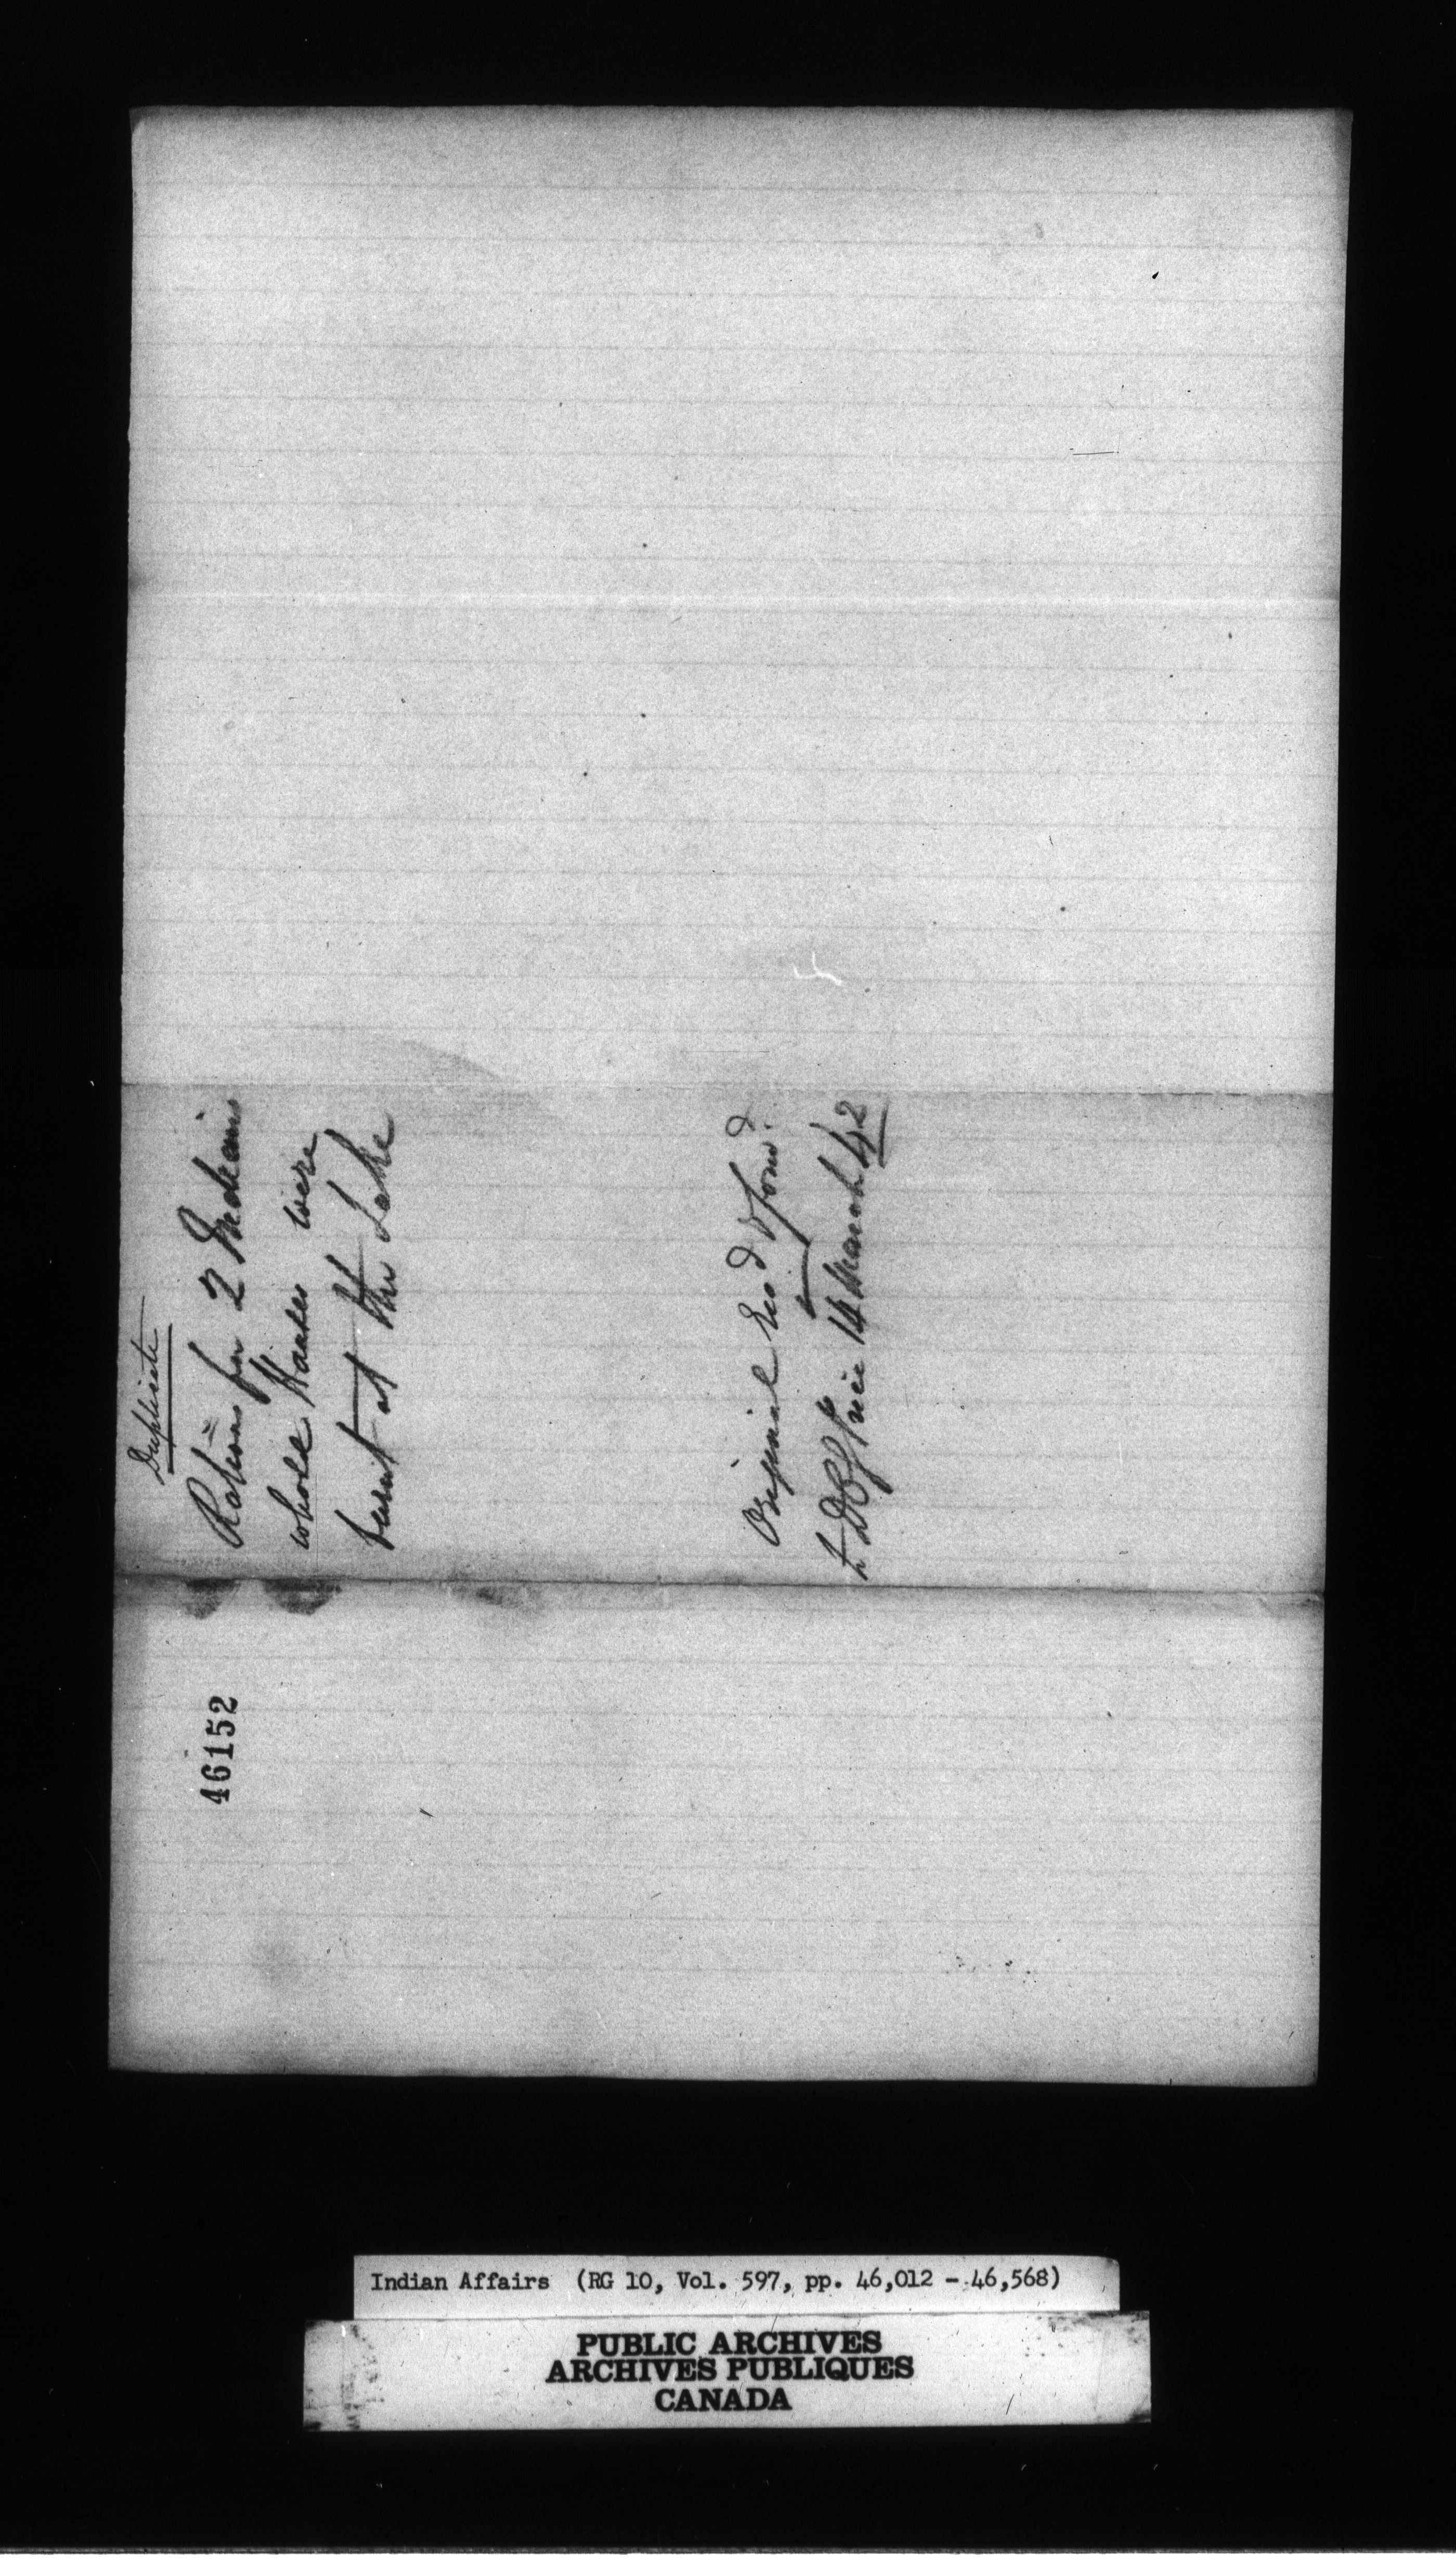 Duplicate
Rations for 2 Indians
whose Houses were
burnt at the Lake
Original
14 March 42
46152
Indian Affairs (RG 10, Vol. 597, pp. 46,012 - 46,568)
PUBLIC ARCHIVES
ARCHIVES PUBLIQUES
CANADA